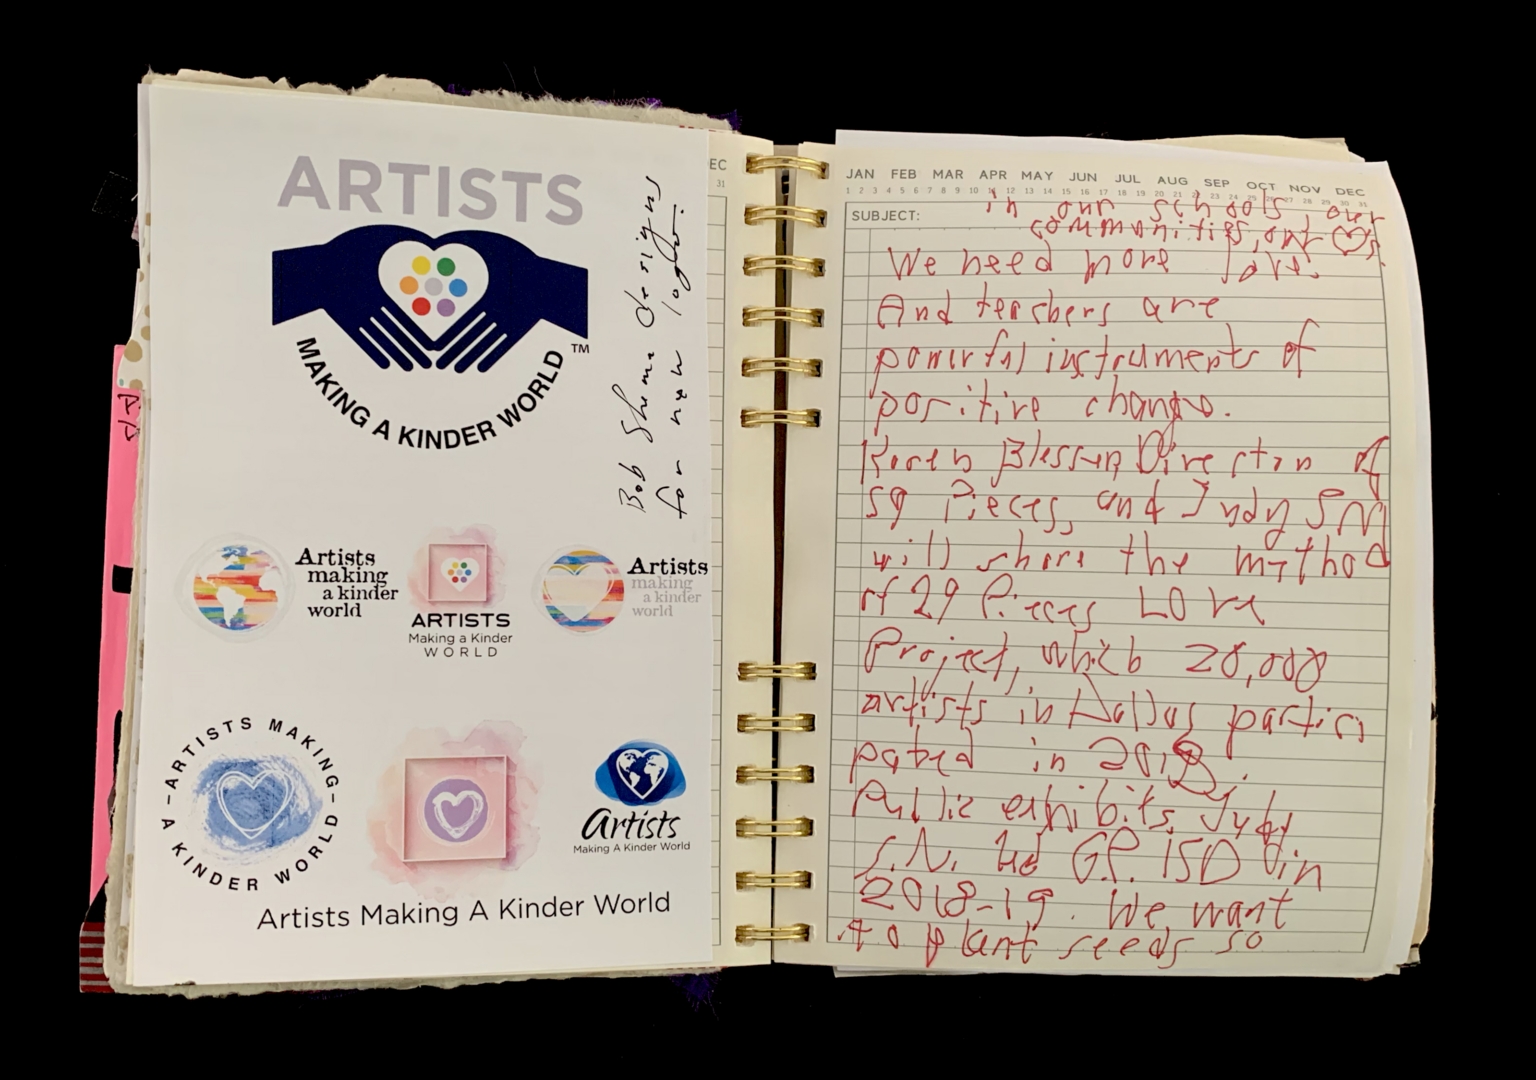 ARTISTS
MAKING A KINDER WORLD
TM
Bob Shema designs
for new logo.
Artists
making
a kinder
world
ARTISTS
Making a Kinder
WORLD
Artists
making
a kinder
world
- ARTISTS MAKING -
A KINDER WORLD
Artists
Making A Kinder World
Artists Making A Kinder World
EC
31
JAN FEB MAR APR MAY JUN JUL AUG SEP OCT NOV DEC
1 2 3 4 5 6 7 8 9 10 11 12 13 14 15 16 17 18 19 20 21 22 23 24 25 26 27 28 29 30 31
SUBJECT:
in our schools, our
communities, our ♡s.
We need more love.
And teachers are
powerful instruments of
positive change.
Karen Blessen Director of
29 Pieces, and Judy SN
will share the method
of 29 Pieces Love
Project, which 20,000
artists in Dallas partici
pated in 2012.
Public exhibits, Judy
S.N. led G.P. ISD in
2018-19. We want
to plant seeds so